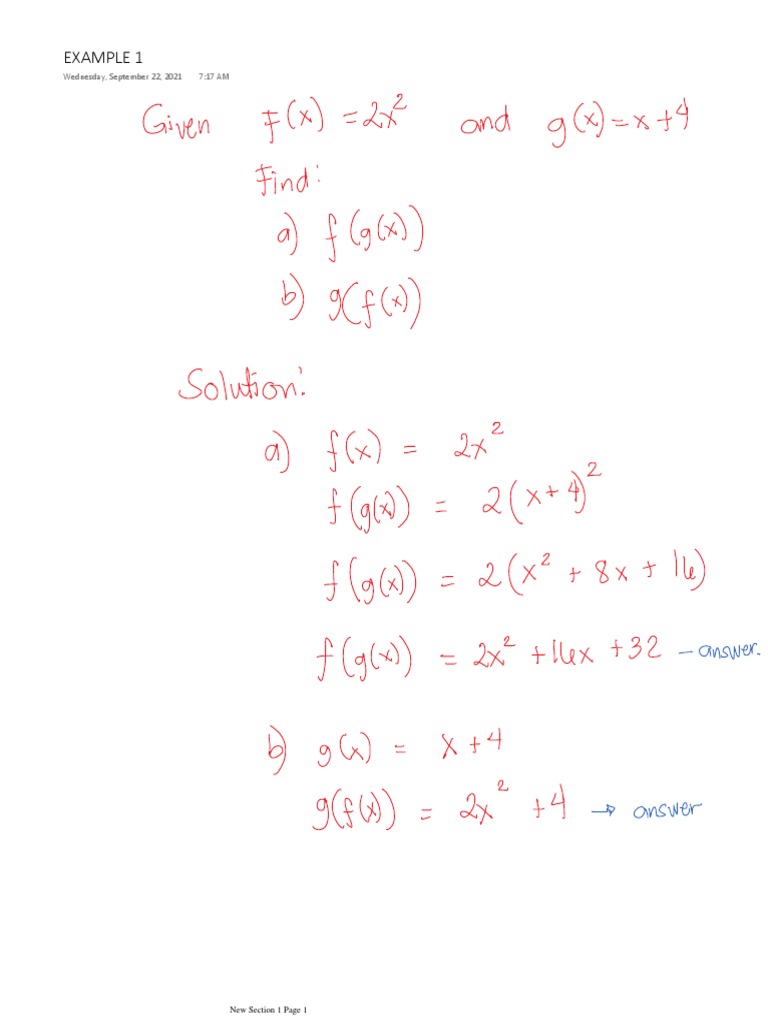 EXAMPLE 1
Wednesday, September 22, 2021 7:17 AM
Given f(x) = 2x² and g(x) = x + 4
Find:
a) f(g(x))
b) g(f(x))
Solution:
a) f(x) = 2x²
f(g(x)) = 2(x + 4)²
f(g(x)) = 2(x² + 8x + 16)
f(g(x)) = 2x² + 16x + 32 – answer.
b) g(x) = x + 4
g(f(x)) = 2x² + 4 → answer
New Section 1 Page 1